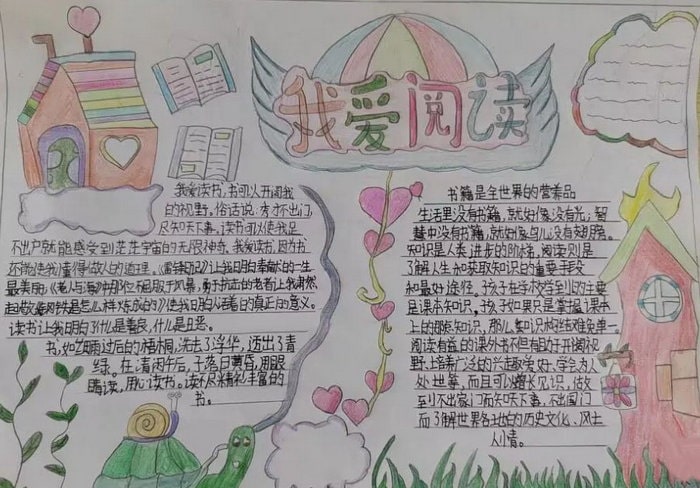 我爱阅读
我爱读书,书可以开阔我
的视野,俗话说:秀才不出门,
尽知天下事。读书可以使我足
不出户就能感受到茫茫宇宙的无限神奇。我爱读书,因为书
还能使我懂得做人的道理。《雷锋日记》让我明白奉献的一生
最美丽,《老人与海》中那位不屈服于风暴,勇于拼击的老者让我肃然
起敬《钢铁是怎么样炼成的》使我明白人活着的真正的意义。
读书让我明白了什么是善良,什么是丑恶。
书,如苦雨过后的梧桐,洗去了浮华,迈出了青
绿。在清雨午后,于落日黄昏,用眼
睛读,用心读书。读不尽精彩丰富的
书。
书籍是全世界的营养品
生活里没有书籍,就好像没有光;智
慧中没有书籍,就好像鸟儿没有翅膀。
知识是人类进步的阶梯,阅读则是
了解人生和获取知识的重要手段
和最好途径。孩子在学校学到的主要
是课本知识,该孩子如果只是掌握课本
上的那些知识,那么,知识构结难免单一。
阅读有益的课外书不但有助于开阔视
野,培养广泛的兴趣爱好、学会为人
处世等,而且可以增长见识,做
到不出家门而知天下事,不出国门
而了解世界各地的历史文化、风土
人情。